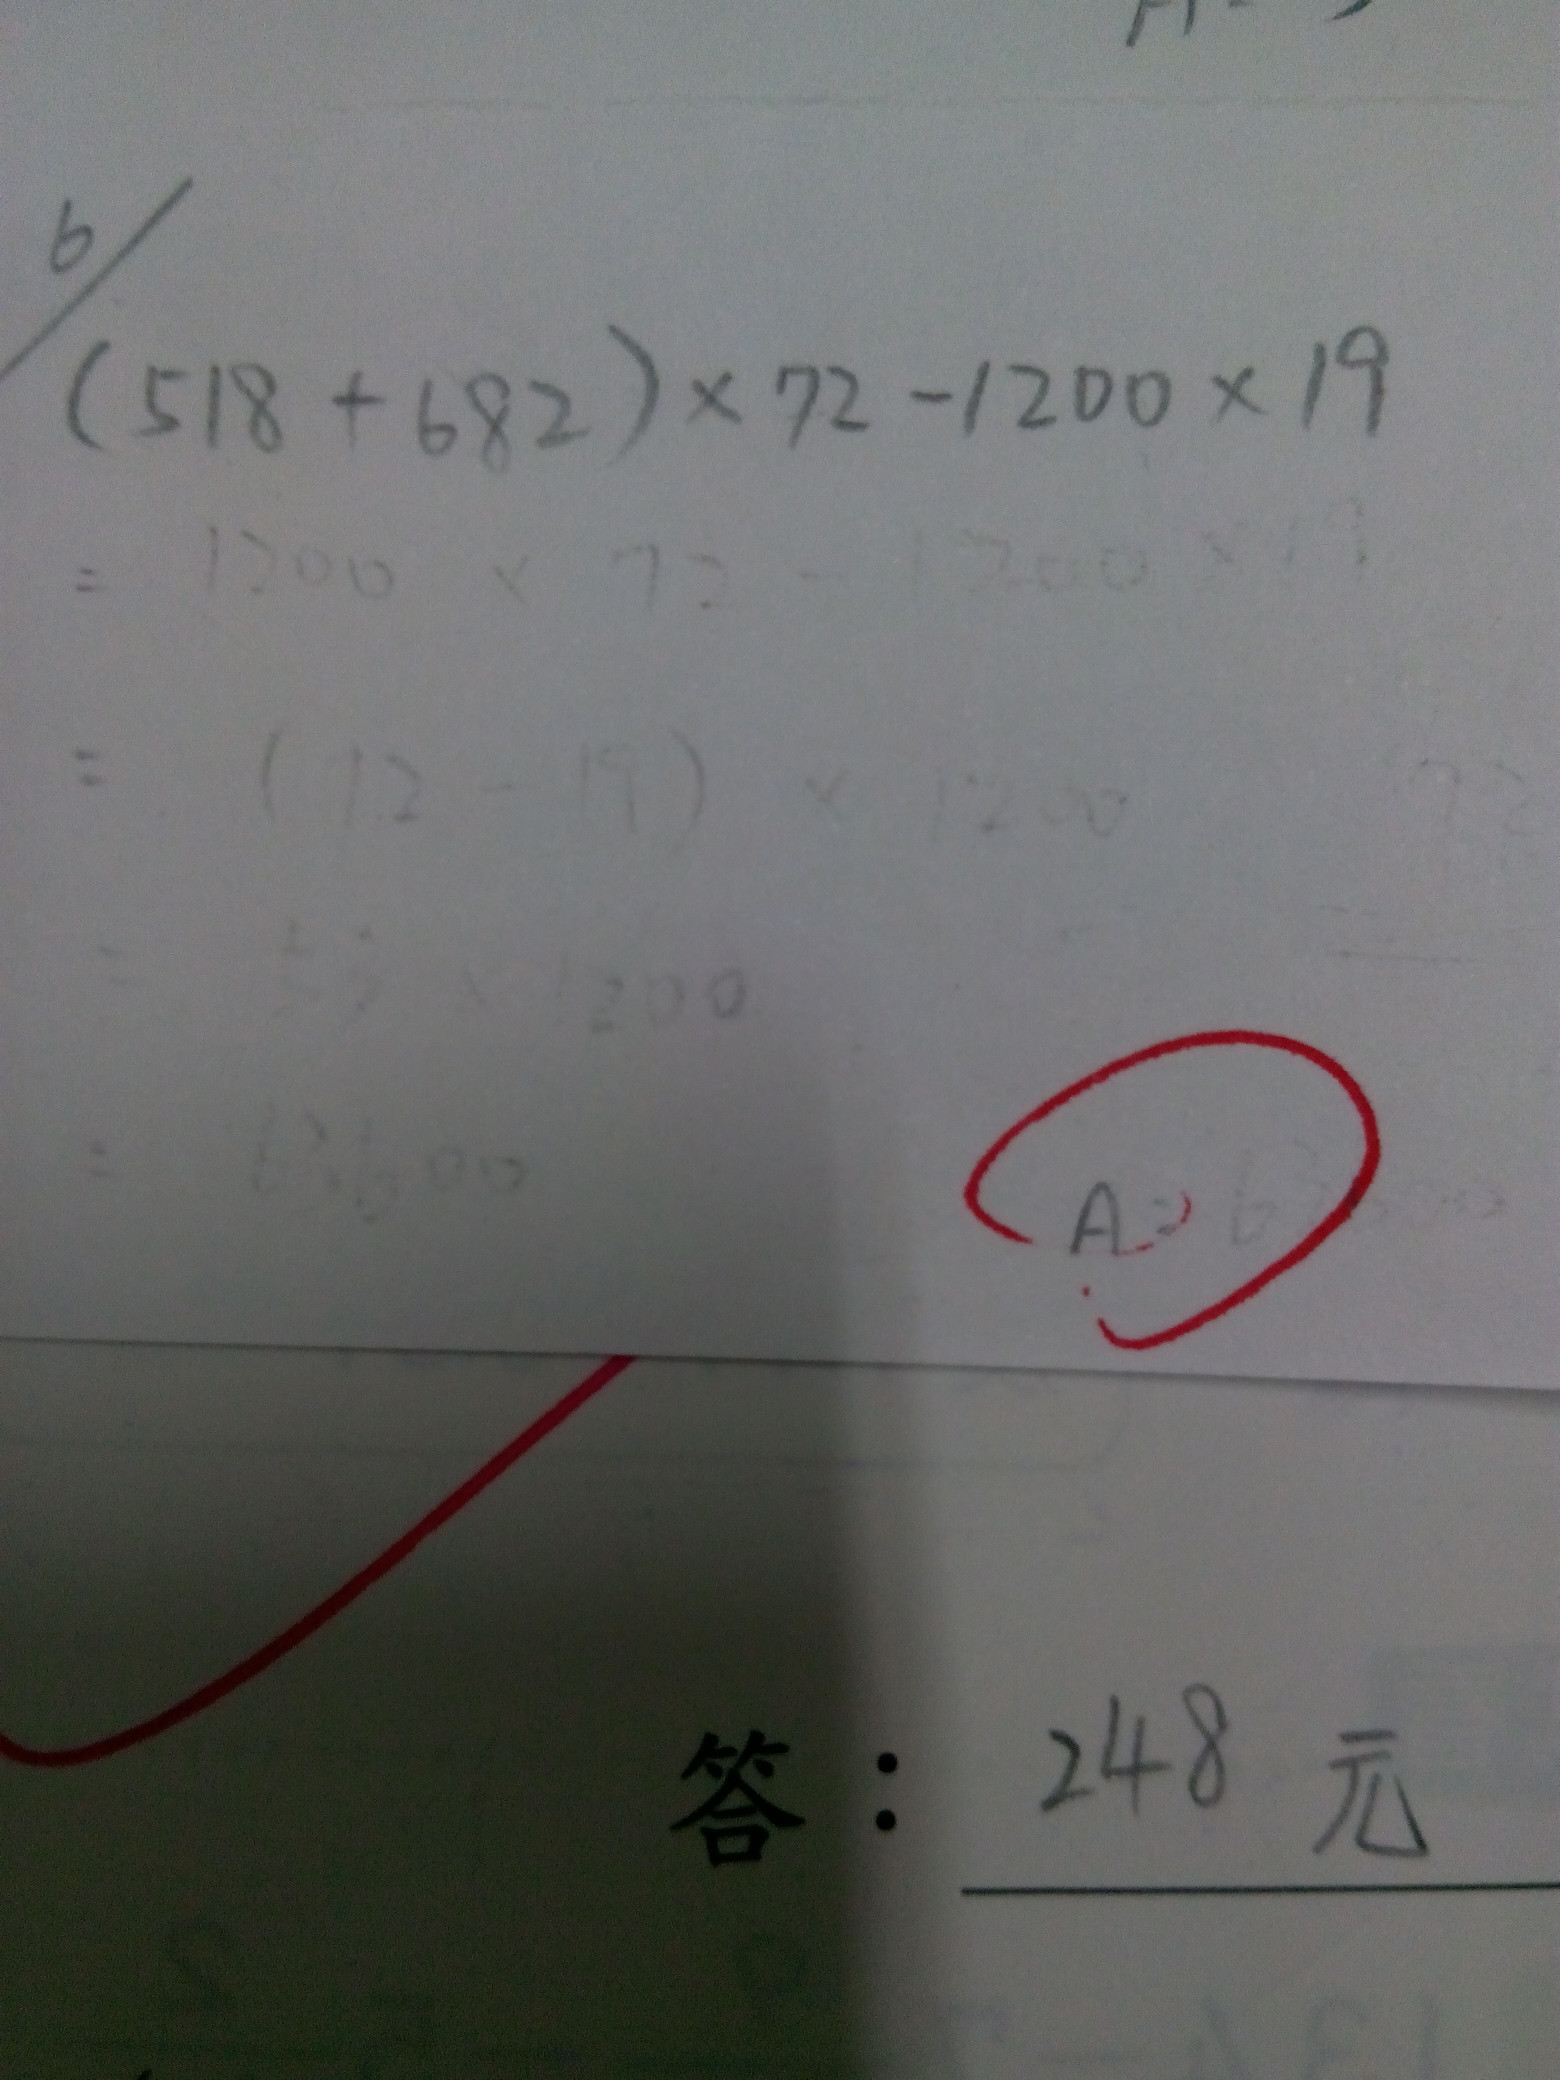 6/
(518+682)×72-1200×19
= 1200 × 72 - 1200 × 19
= (72 - 19) × 1200
= 53 × 1200
= 63600
A = 63600
答：248 元